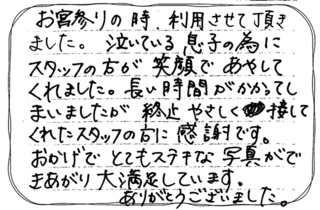 お宮参りの時、利用させて頂き
ました。泣いている息子の為に
スタッフの方が笑顔であやして
くれました。長い時間がかかってし
まいましたが終止やさしく接して
くれたスタッフの方に感謝です。
おかげでとてもステキな写真がで
きあがり大満足しています。
ありがとうございました。